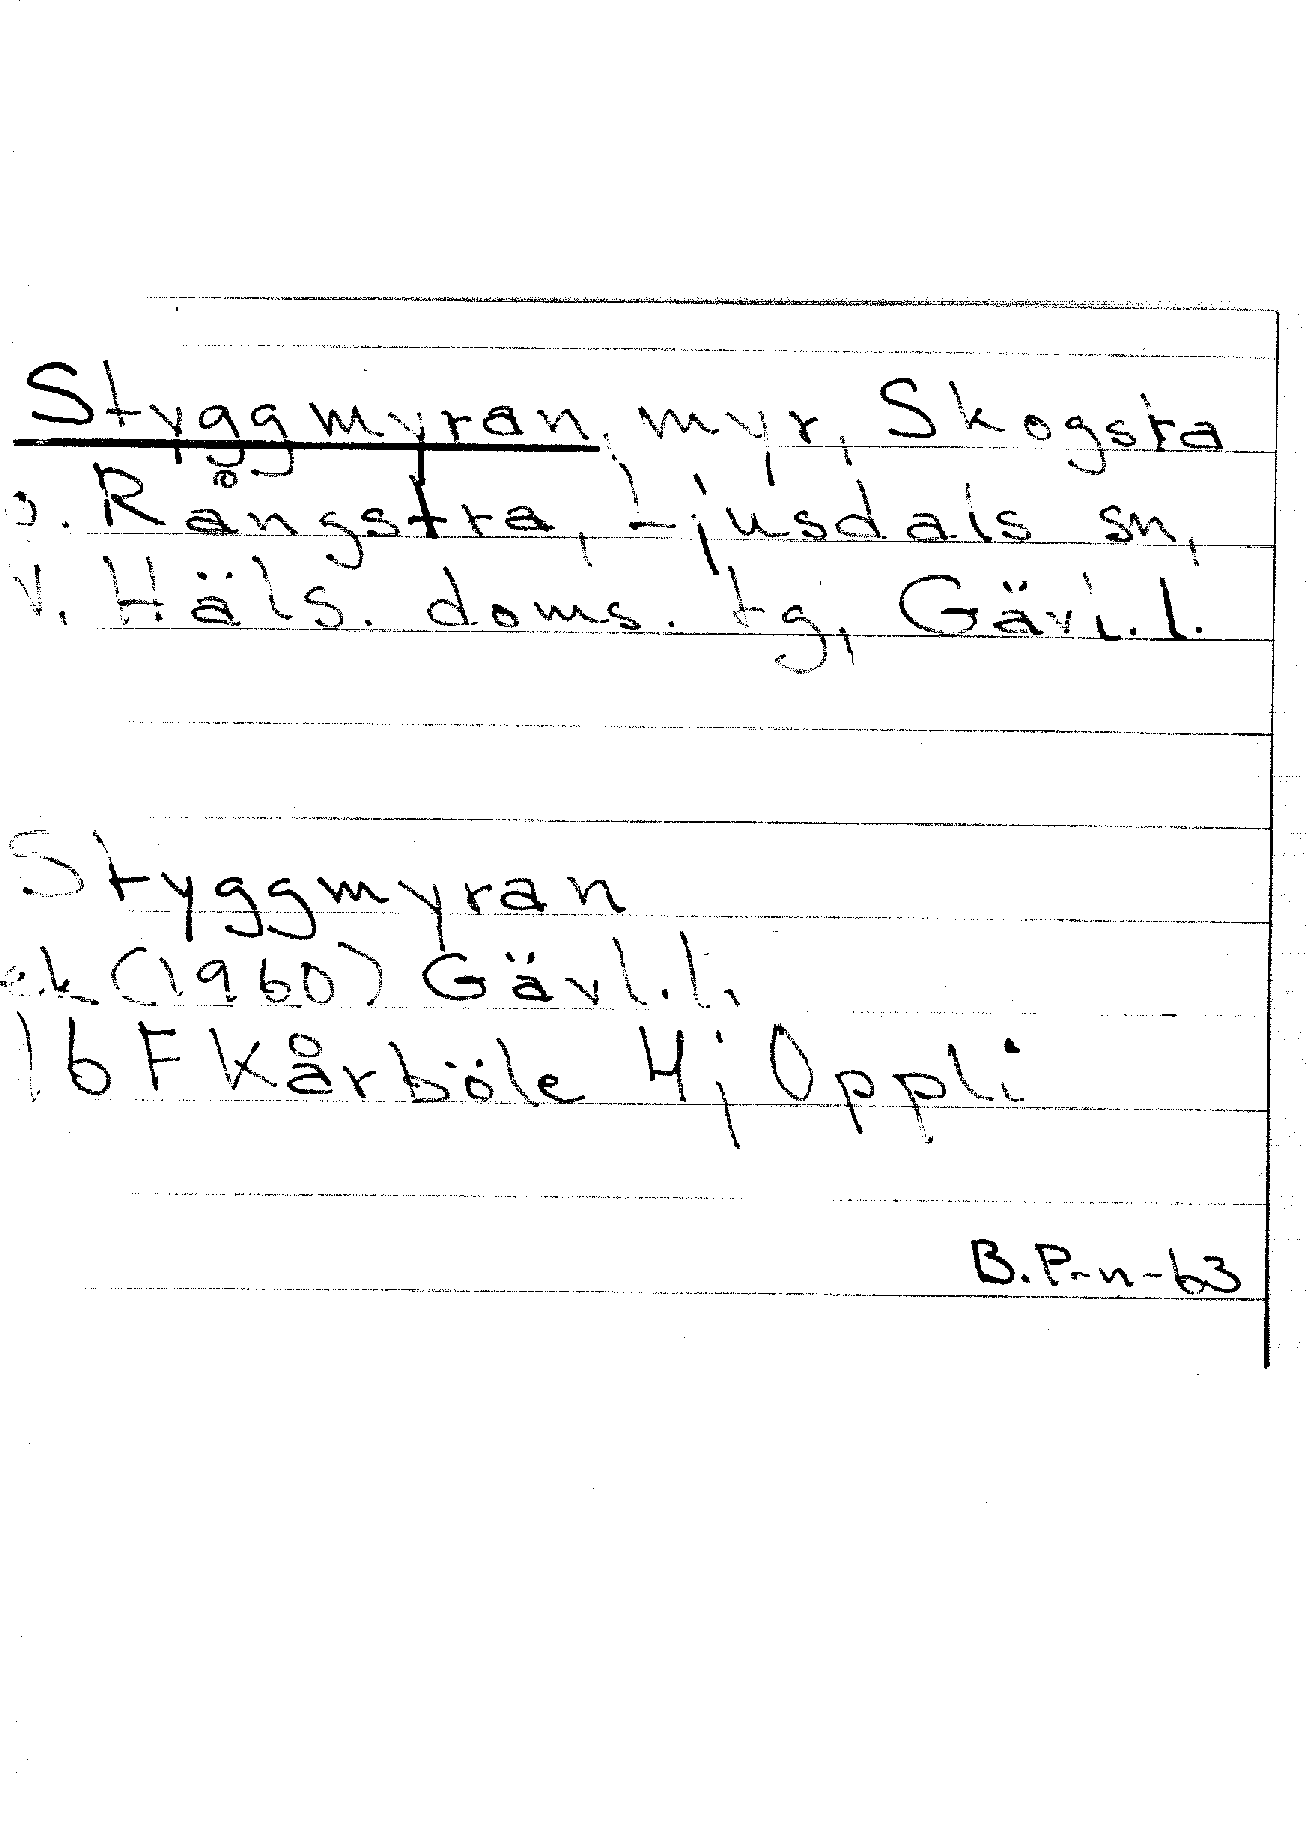 Styggmyran, myr, Skogsta
o. Rångstra, Ljusdals sn,
v. Häls. doms. tg, Gävl. l.
Styggmyran
ek (1960) Gävl. l.
16 F Kårböle 4j Oppli
B.P-n-63